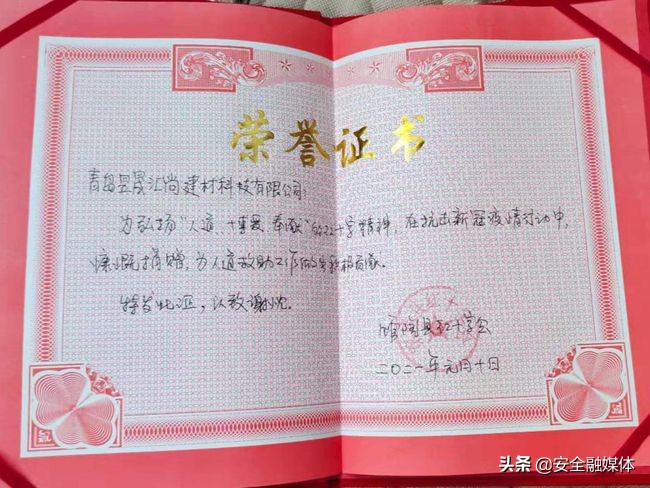 荣誉证书
青岛昱晟汇尚建材科技有限公司:
为弘扬"人道、博爱、奉献"的红十字精神,在抗击新冠疫情行动中,
慷慨捐赠,为人道救助工作做出积极贡献。
特发此证,以致谢忱。
馆陶县红十字会
二〇二一年元月十日
头条 @安全融媒体